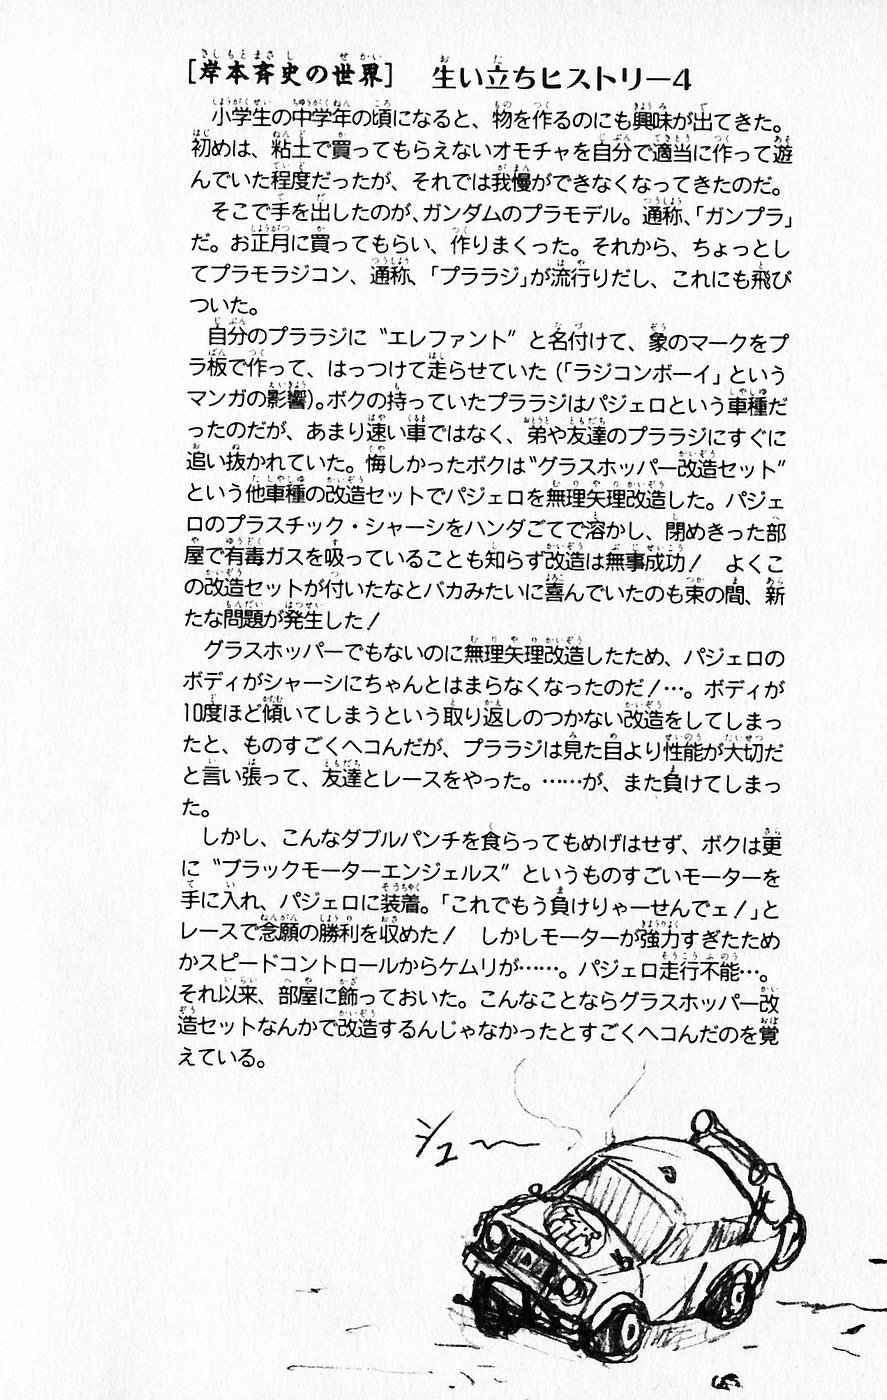 [岸本斉史の世界] 生い立ちヒストリー4
小学生の中学年の頃になると、物を作るのにも興味が出てきた。
初めは、粘土で買ってもらえないオモチャを自分で適当に作って遊
んでいた程度だったが、それでは我慢ができなくなってきたのだ。
そこで手を出したのが、ガンダムのプラモデル。通称、「ガンプラ」
だ。お正月に買ってもらい、作りまくった。それから、ちょっとし
てプラモラジコン、通称、「プララジ」が流行りだし、これにも飛び
ついた。
自分のプララジに〝エレファント〟と名付けて、象のマークをプ
ラ板で作って、はっつけて走らせていた(「ラジコンボーイ」という
マンガの影響)。ボクの持っていたプララジはパジェロという車種だ
ったのだが、あまり速い車ではなく、弟や友達のプララジにすぐに
追い抜かれていた。悔しかったボクは〝グラスホッパー改造セット〟
という他車種の改造セットでパジェロを無理矢理改造した。パジェ
ロのプラスチック・シャーシをハンダごてで溶かし、閉めきった部
屋で有毒ガスを吸っていることも知らず改造は無事成功! よくこ
の改造セットが付いたなとバカみたいに喜んでいたのも束の間、新
たな問題が発生した!
グラスホッパーでもないのに無理矢理改造したため、パジェロの
ボディがシャーシにちゃんとはまらなくなったのだ!…。ボディが
10度ほど傾いてしまうという取り返しのつかない改造をしてしまっ
たと、ものすごくヘコんだが、プララジは見た目より性能が大切だ
と言い張って、友達とレースをやった。……が、また負けてしまっ
た。
しかし、こんなダブルパンチを食らってもめげはせず、ボクは更
に〝ブラックモーターエンジェルス〟というものすごいモーターを
手に入れ、パジェロに装着。「これでもう負けりゃーせんでェ!」と
レースで念願の勝利を収めた! しかしモーターが強力すぎたため
かスピードコントロールからケムリが……。パジェロ走行不能…。
それ以来、部屋に飾っておいた。こんなことならグラスホッパー改
造セットなんかで改造するんじゃなかったとすごくヘコんだのを覚
えている。
シュー